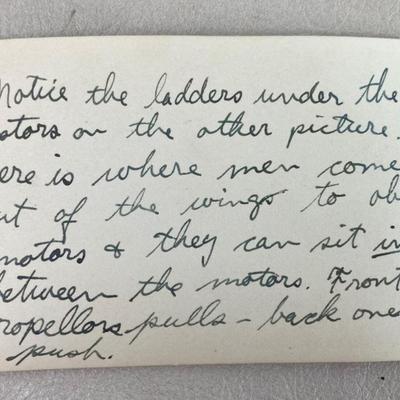 Notice the ladders under the
otors on the other picture.
ere is where men come
ut of the wings to ob
motors & they can sit in
between the motors. Front
ropellors pulls - back one
push.